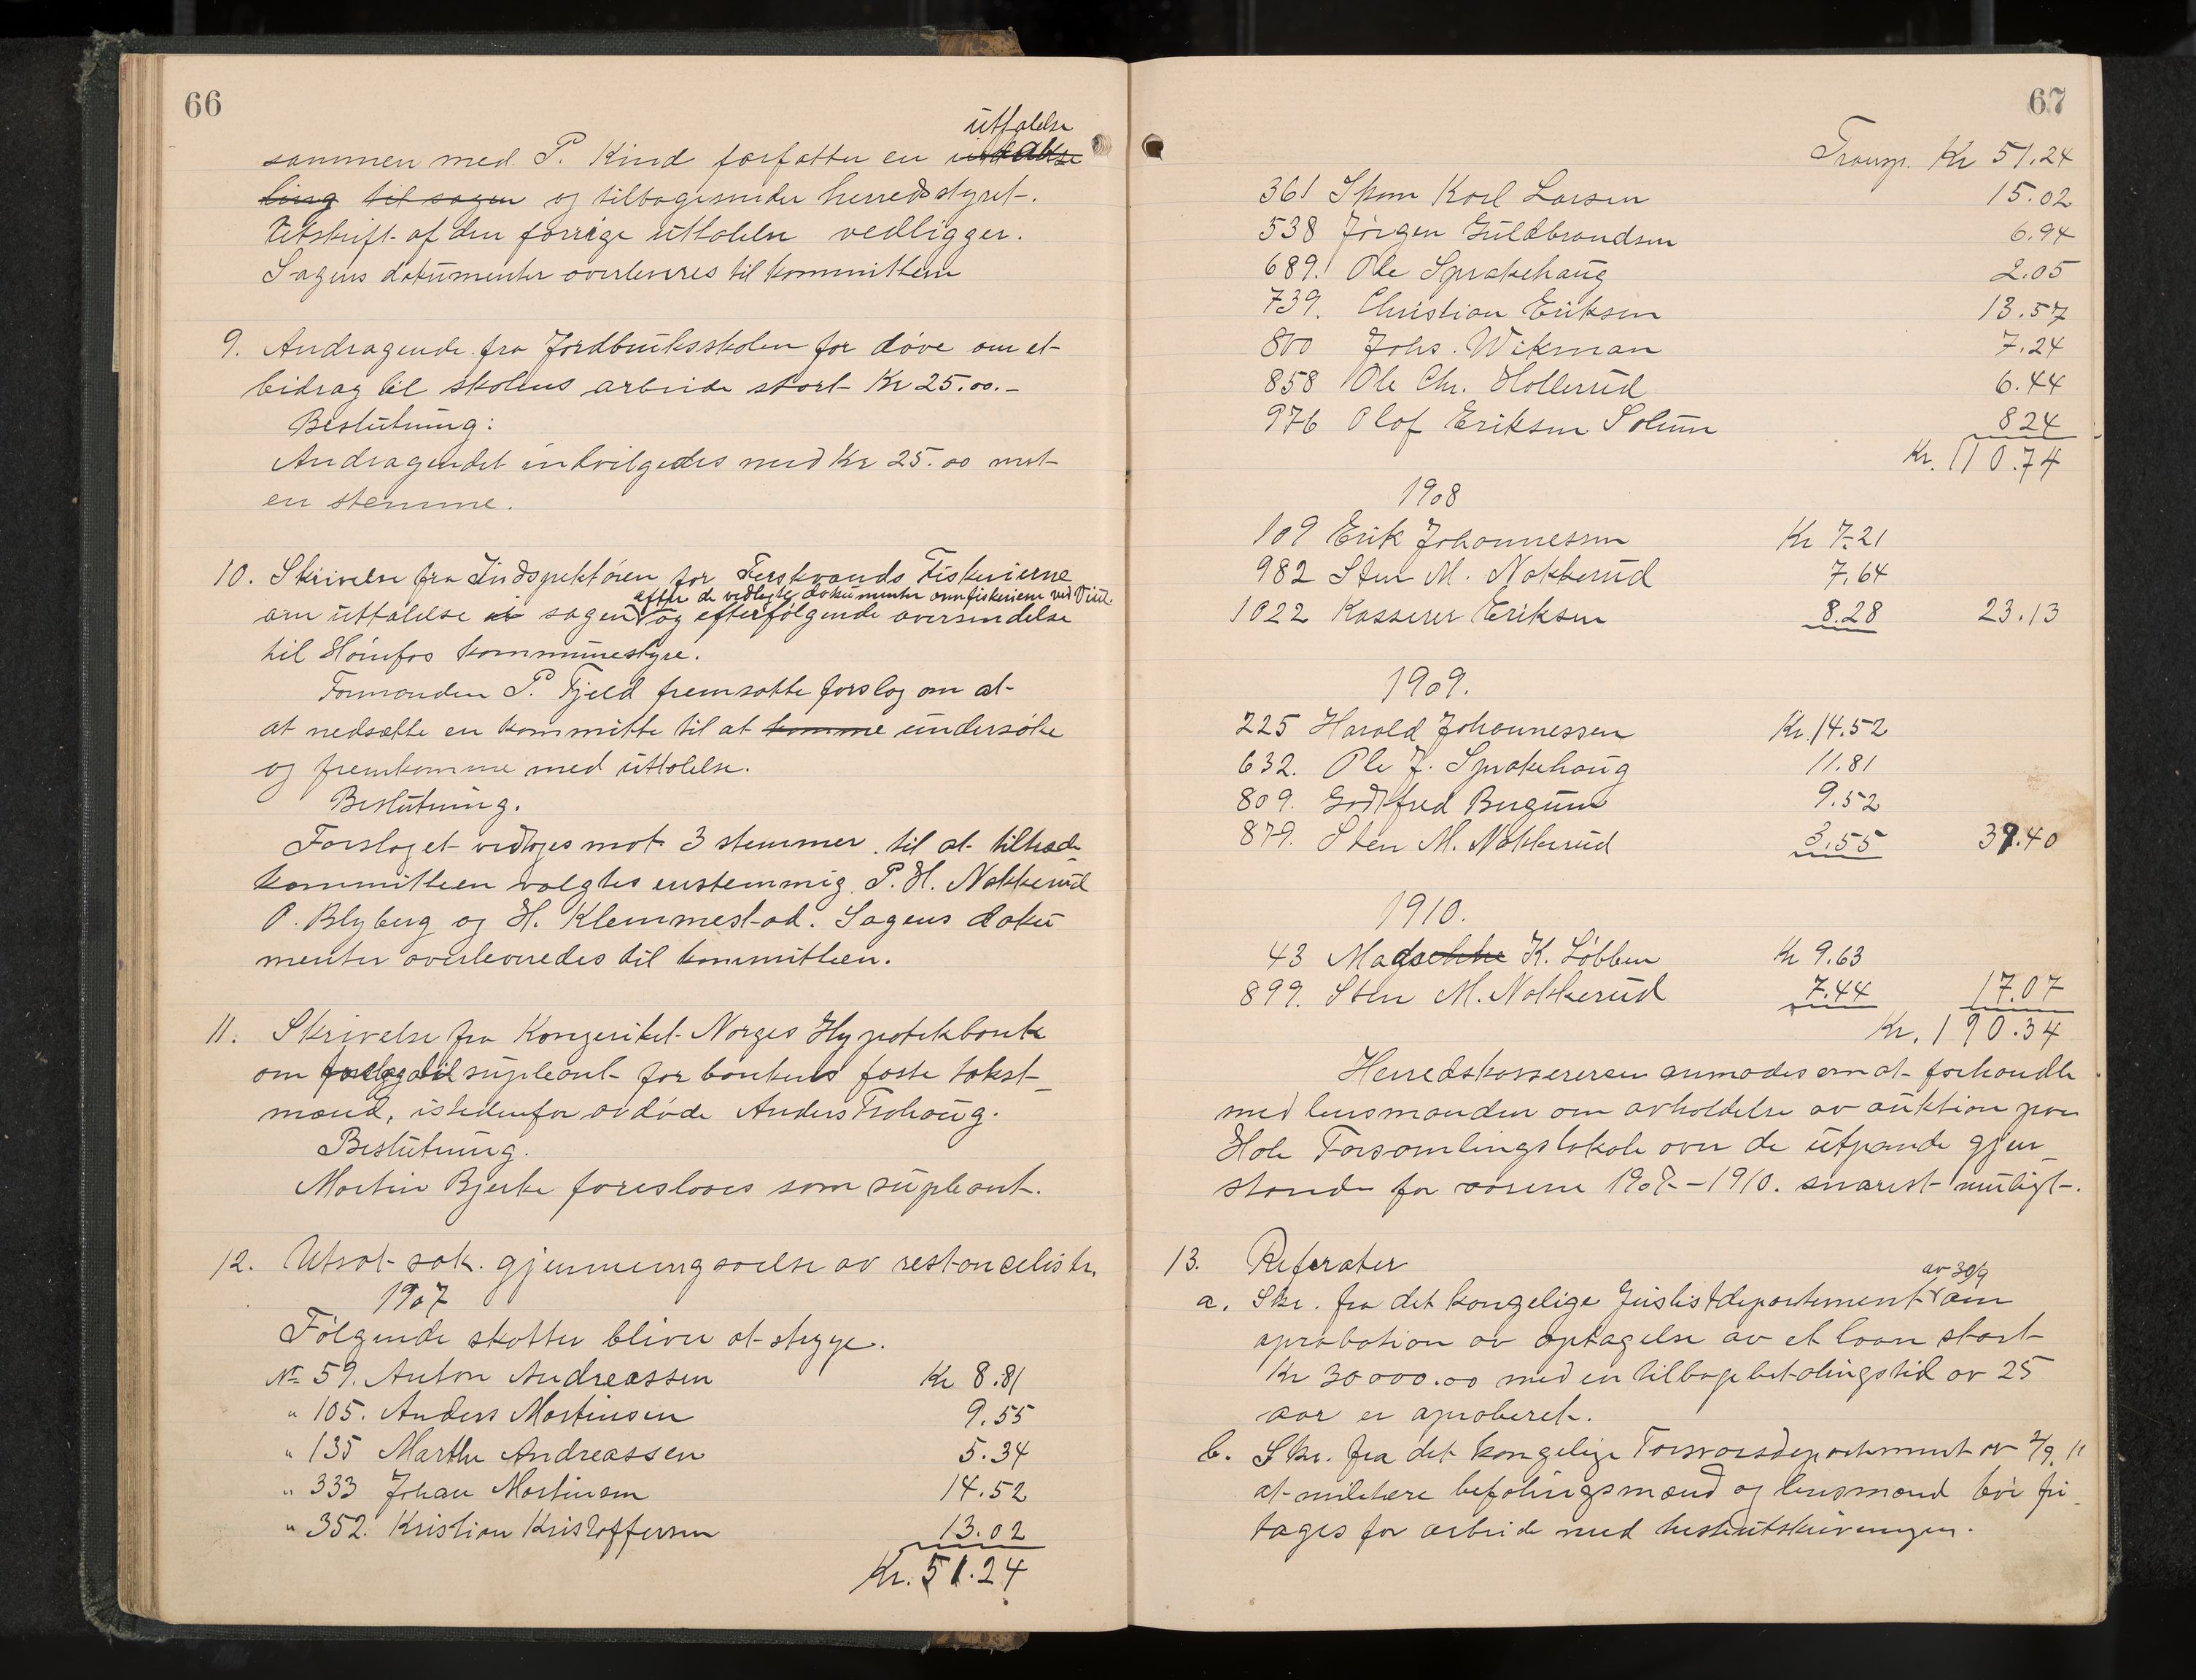 66
uttalelse
sammen med P. Kind forfatter en
ling til sagen og tilbagesender herredsstyret.
Utskrift af den forrige uttalelse vedligger.
Sagens dokumenter overleveres til kommitteen
9. Andragende fra Jordbruksskolen for døve om et
bidrag til skolens arbeide stort Kr 25.00.-
Beslutning:
Andragendet indvilgedes med Kr 25.00 mot
en stemme.
10. Skrivelse fra Indspektören for Ferskvands Fiskerierne
efter de vedlagte dokumenter om fiskeriene ved Viul.
om uttalelse i sagen og efterfölgende oversendelse
til Hönefos kommunestyre.
Formanden P. Fjeld fremsatte forslag om at
at nedsætte en kommitte til at komme undersöke
og fremkomme med uttalelse.
Beslutning.
Forslaget vedtoges mot 3 stemmer. til at tiltræde
kommitteen valgtes enstemmig P. H. Nakkerud
O. Blyberg og H. Klemmestad. Sagens doku
menter overleveredes til kommitteen.
11. Skrivelse fra Kongeriket Norges Hypotekbank
om forslag til supleant for bankens faste takst-
mænd, istedenfor avdöde Anders Frohaug.
Beslutning.
Martin Bjerke foreslaaes som supleant.
12. Utsat sak. gjennemgaaelse av restancelister.
1907
Fölgende skatter bliver at stryge.
No 59. Anton Andreassen Kr 8.81
" 105. Anders Martinsen 9.55
" 135 Marthe Andreassen 5.34
" 333 Johan Martinsen 14.52
" 352. Kristian Kristoffersen 13.02
Kr. 51.24
67
Transp. Kr 51.24
361 Skom Karl Larsen 15.02
538 Jörgen Guldbrandsen 6.94
689. Ole Sprakehaug 2.05
739. Christian Eriksen 13.57
800 Johs. Wikman 7.24
858 Ole Chr. Hollerud 6.44
976 Olof Eriksen Solum 824
Kr. 110.74
1908
109 Erik Johannessen Kr 7.21
982 Sten M. Nakkerud 7.64
1022 Kasserer Eriksen 8.28 23.13
1909.
225 Harald Johannessen Kr. 14.52
632. Ole J. Sprakehaug 11.81
809. Godtfred Burgum 9.52
879. Sten M. Nakkerud 3.55 39.40
1910.
43 K. Löbben Kr 9.63
899. Sten M. Nakkerud 7.44 17.07
Kr. 190.34
Herredskassereren anmodes om at forhandle
med lensmanden om avholdelse av auktion paa
Hole Forsamlingslokale over de utpante gjen-
stande for aarene 1907-1910. snarest muligt.
13. Referater
av 30/9
a. Skr. fra det kongelige Justistdepartement om
aprobation av optagelse av et laan stort
Kr 30000.00 med en tilbagebetalingstid av 25
aar er aproberet.
b. Skr. fra det kongelige Forsvarsdepartement av 2/9. 11
at militære befalingsmænd og lensmænd bör fri-
tages for arbeide med hesteutskrivningen.